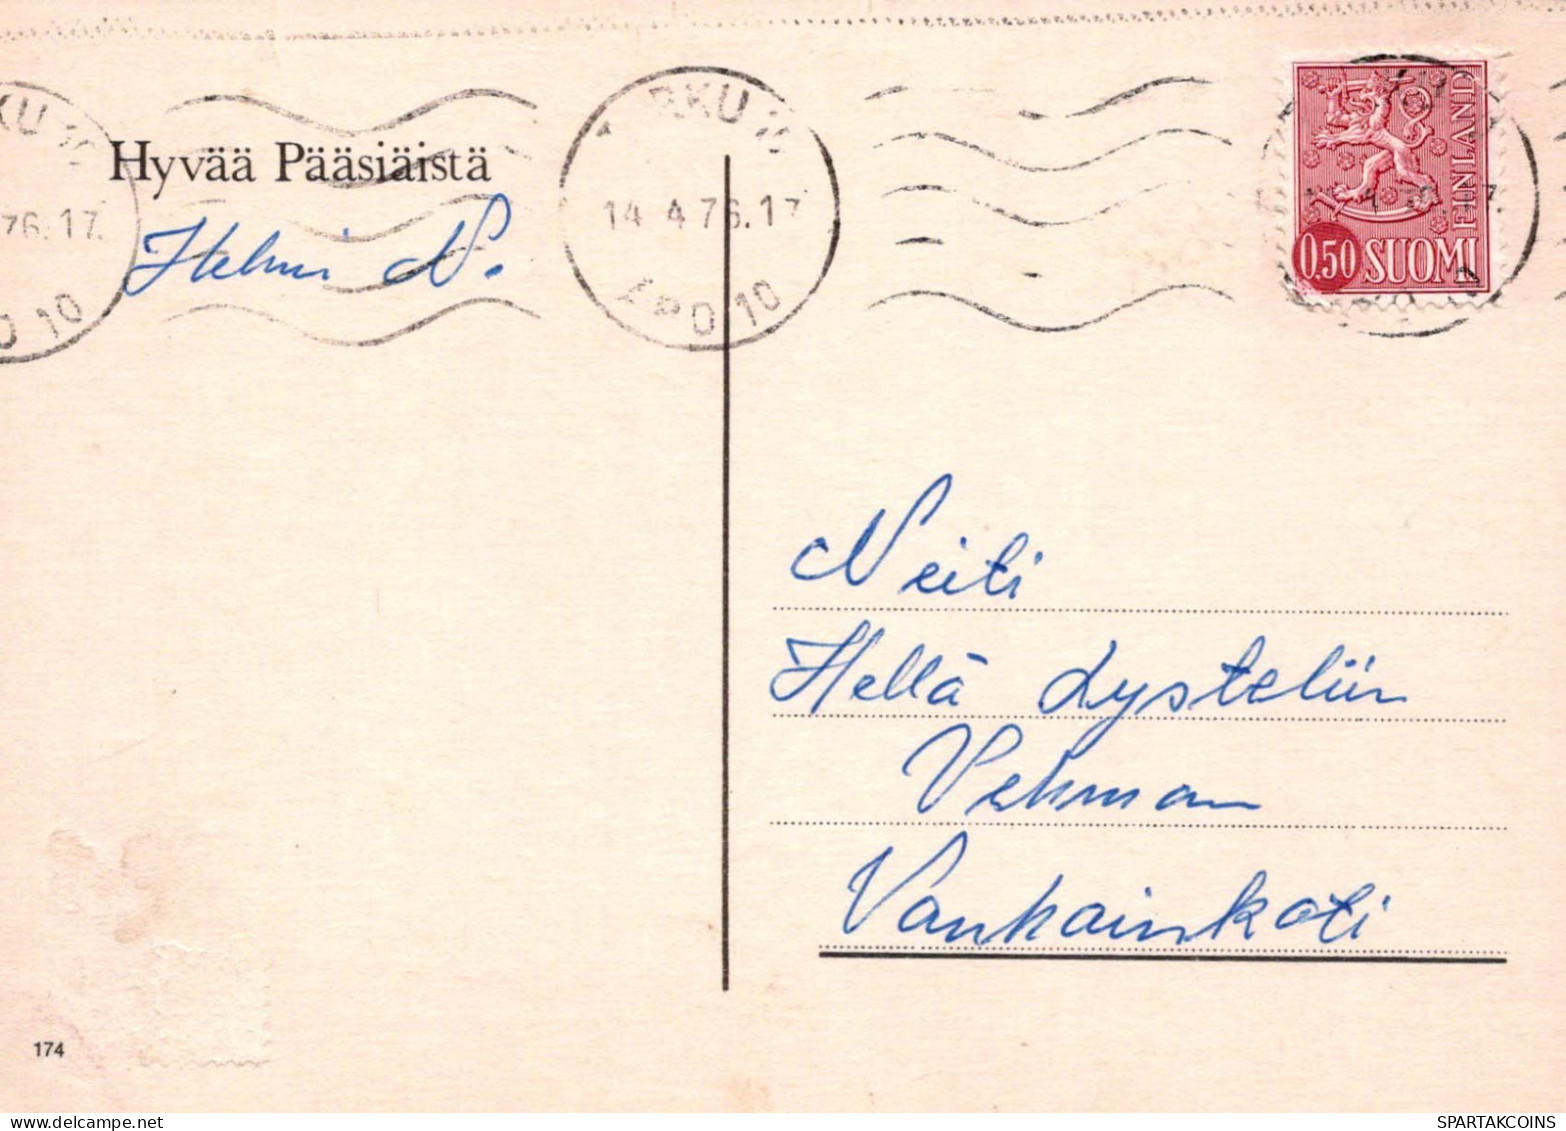 KU 10
76.17.
O 10
Hyvää Pääsiäistä
Helmi N.
RKU 10
14.4.76.17
ÅBO 10
FINLAND
0,50 SUOMI
Neiti
Hellä Lystelin
Vehmaan
Vanhainkoti
174
delcampe.net
SPARTAKCOINS